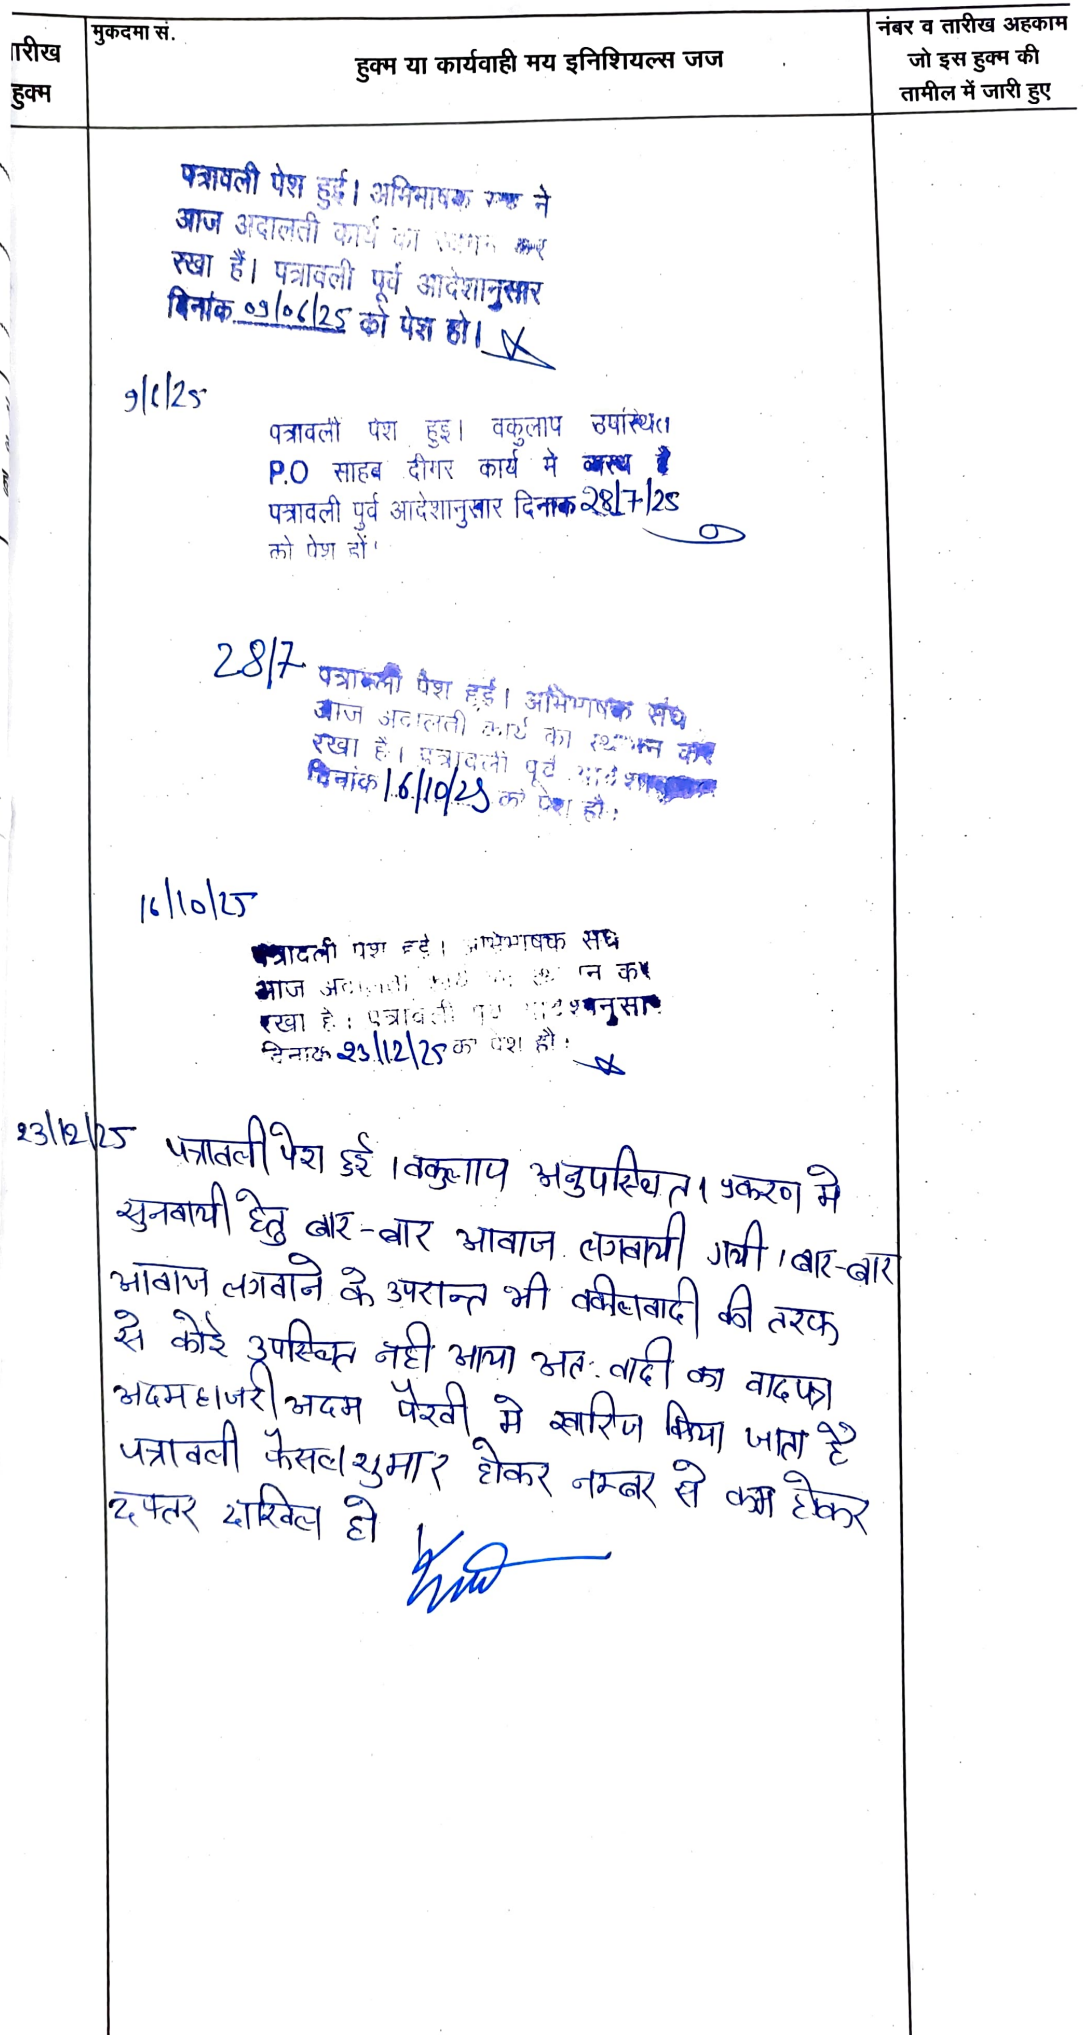 मुकदमा सं.
तारीख
हुक्म
हुक्म या कार्यवाही मय इनिशियल्स जज
नंबर व तारीख अहकाम
जो इस हुक्म की
तामील में जारी हुए
पत्रावली पेश हुई। अभिभाषक ने
आज अदालती कार्य का स्थगन कर
रखा हैं। पत्रावली पूर्व आदेशानुसार
दिनांक 09/06/25 को पेश हो।
9/6/25
पत्रावली पेश हुइ। वकुलाप उपस्थित
P.O साहब दीगर कार्य मे व्यस्थ है
पत्रावली पुर्व आदेशानुसार दिनाक 28/7/25
को पेश हों
28/7
पत्रावली पेश हुई। अभिभाषक संघ
आज अदालती कार्य का स्थगन कर
रखा है। पत्रावली पूर्व
दिनांक 16/10/25 को पेश हौ
16/10/25
पत्रावली पेश हुई। अभिभाषक सघ
आज कर
रखा है। पत्रावली
दिनाक 23/12/25 को पेश हौ
23/12/25
पत्रावली पेश हुई। वकुलाप अनुपस्थित। प्रकरण मे
सुनवायी हेतु बार-बार आवाज लगवायी गयी। बार-बार
आवाज लगवाने के उपरान्त भी वकीलवादी की तरफ
से कोई उपस्थित नही आया अतः वादी का वादपत्र
अदमहाजरी/अदम पैरवी मे खारिज किया जाता है
पत्रावली फैसल शुमार होकर नम्बर से कम होकर
दफ्तर दाखिल हो